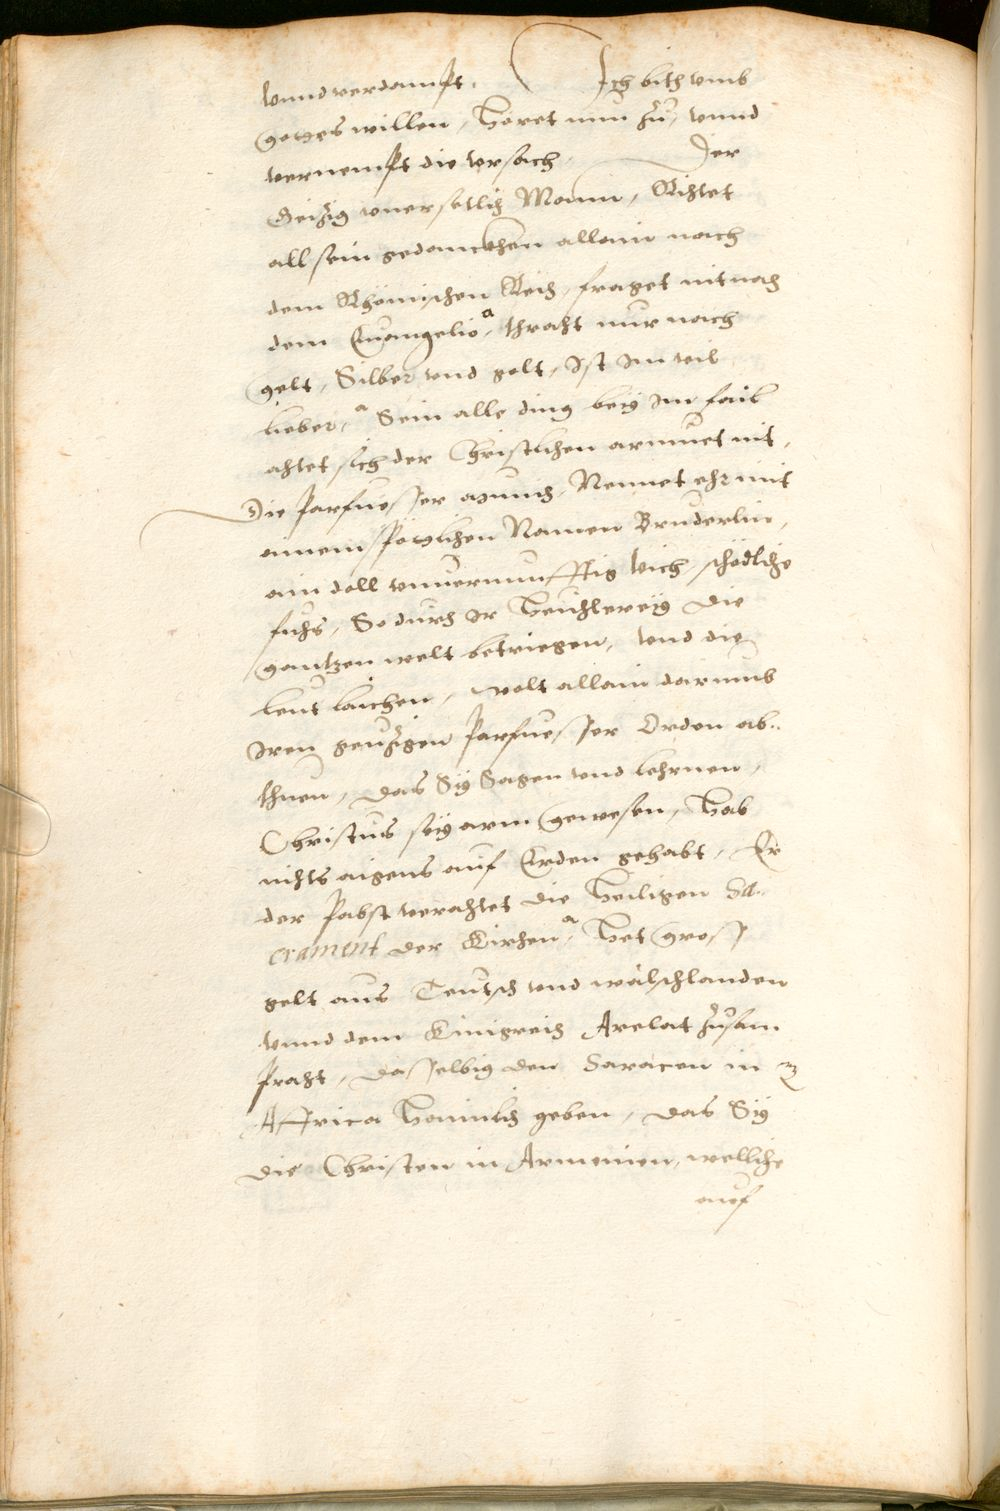 vnnd verdampt. Ich bith vmb
gottes willen, höret nun zů, vnnd
vernempt die vrsach. Der
Geitzig vnersetlich Mann, Richtet
all sein gedanckhen allain nach
dem Rhömischen Reich, fraget nit nach
dem Euangelio, thracht nur nach
gelt, Silber vnd golt, ist im vil
lieber, Sein alle ding bey im fail
achtet sich der Christlichen armuet nit,
Die Parfuesser münch, Nennet ehr mit
ainem spötlichen Namen Bruderlin,
ain doll vnuernunfftig vich, schödliche
fuchs, So durch ir heuchlerey die
gantzen welt betriegen, vnd die
leut laichen, wolt allain darumb
iren geitzigen Parfuesser Orden ab..
thuen, das Sy Sagen vnd lehrnen,
Christus sey arm gewesen, hab
nichts aigens auf Erden gehabt, Er
der Pabst verachtet die heiligen Sa..
crament der Kirchen, het gross
gelt aus Teutsch vnd wälschlanden
vnnd dem Künigreich Arelat zůsam
pracht, dasselbig den Saracen in
Affrica haimlich geben, das Sy
die Christen in Armenien, welliche
auf